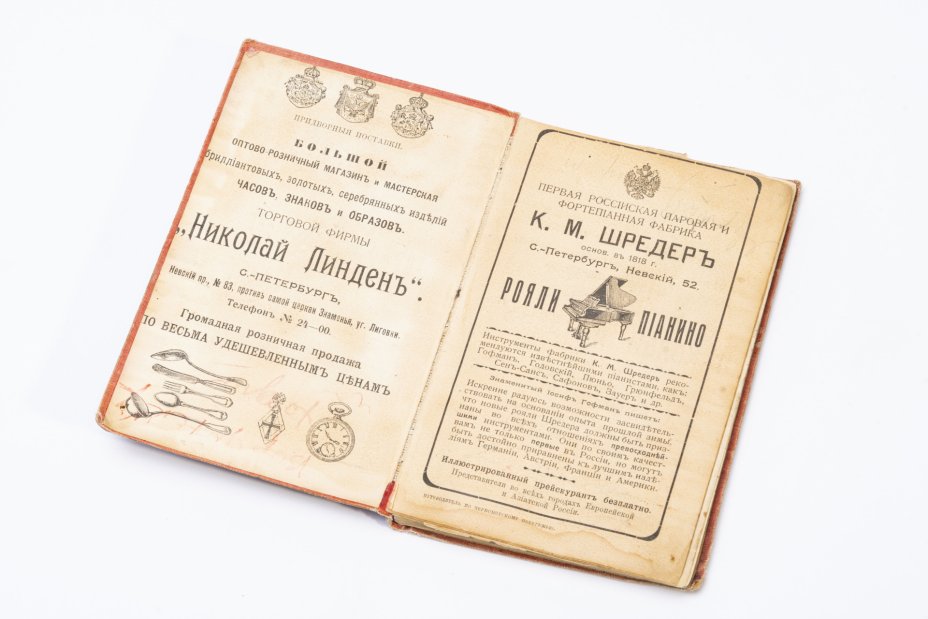 ПРИДВОРНЫЯ ПОСТАВКИ.
БОЛЬШОЙ
ОПТОВО-РОЗНИЧНЫЙ МАГАЗИНЪ и МАСТЕРСКАЯ
брилліантовыхъ, золотыхъ, серебрянныхъ издѣлій
ЧАСОВЪ, ЗНАКОВЪ и ОБРАЗОВЪ.
ТОРГОВОЙ ФИРМЫ
„НИКОЛАЙ ЛИНДЕНЪ“.
С.-ПЕТЕРБУРГЪ,
Невскій пр., № 83, противъ самой церкви Знаменья, уг. Лиговки.
Телефонъ № 24—00.
Громадная розничная продажа
ПО ВЕСЬМА УДЕШЕВЛЕННЫМЪ ЦѢНАМЪ
ПЕРВАЯ РОССІЙСКАЯ ПАРОВАЯ И
ФОРТЕПІАННАЯ ФАБРИКА
К. М. ШРЕДЕРЪ
основ. въ 1818 г.
С.-Петербургъ, Невскій, 52.
РОЯЛИ ПІАНИНО
Инструменты фабрики К. М. Шредеръ реко-
мендуются извѣстнѣйшими піанистами, какъ:
Гофманъ, Годовскій, Пюньо, Гринфельдъ,
Сенъ-Сансъ, Сафоновъ, Зауеръ и др.
Знаменитый Іосифъ Гофманъ пишетъ:
Искренне радуюсь возможности засвидѣтель-
ствовать на основаніи опыта прошлой зимы,
что новые рояли Шредера должны быть приз-
наны во всѣхъ отношеніяхъ превосходнѣй-
шими инструментами. Они по своимъ качест-
вамъ не только первые въ Россіи, но могутъ
быть достойно приравнены къ лучшимъ издѣ-
ліямъ Германіи, Австріи, Франціи и Америки.
Иллюстрированный прейскурантъ безплатно.
Представители во всѣхъ городахъ Европейской
и Азіатской Россіи.
ПУТЕВОДИТЕЛЬ ПО ЧЕРНОМОРСКОМУ ПОБЕРЕЖЬЮ.